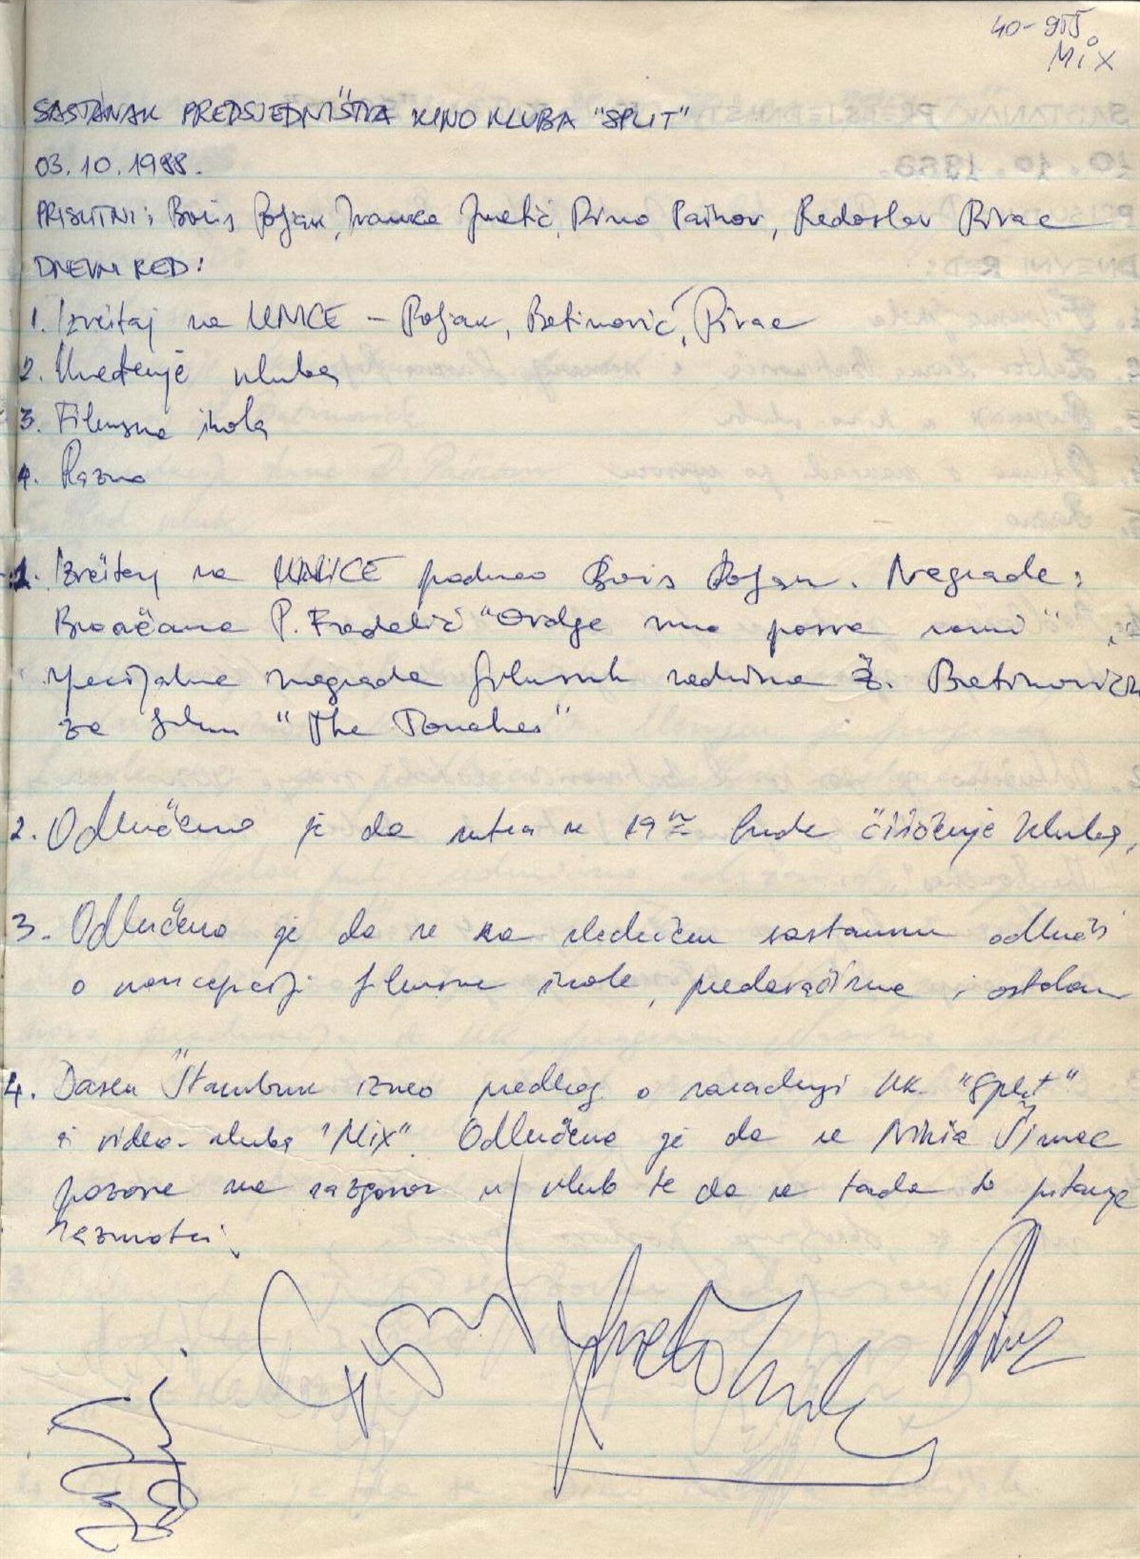 40-955
Mix
SASTANAK PREDSJEDNIŠTVA KINO KLUBA "SPLIT"
03.10.1988.
PRISUTNI: Boris Poljak, Ivanka Juretić, Dino Pažhov, Radoslav Pivac
DNEVNI RED:
1. Izvještaj sa UNICE – Poljak, Batinović, Pivac
2. Uređenje kluba
3. Filmska škola
4. Razno
1. Izvještaj sa UNICE podneo Boris Poljak. Nagrade:
Brončana P. Fradelić "Ovdje smo posve sami",
specijalna nagrada filmskih radnika Ž. Batinoviću
za film "The Touches"
2. Odlučeno je da sutra u 19 h bude čišćenje kluba,
3. Odlučeno je da se na sledećem sastanku odluči
o koncepciji filmske škole, predavačima i ostalom
4. Štambuk izneo predlog o saradnji KK "Split"
i video-kluba "Mix". Odlučeno je da se Nikša Šimac
pozove na razgovor u klub te da se tada to pitanje
razmotri.